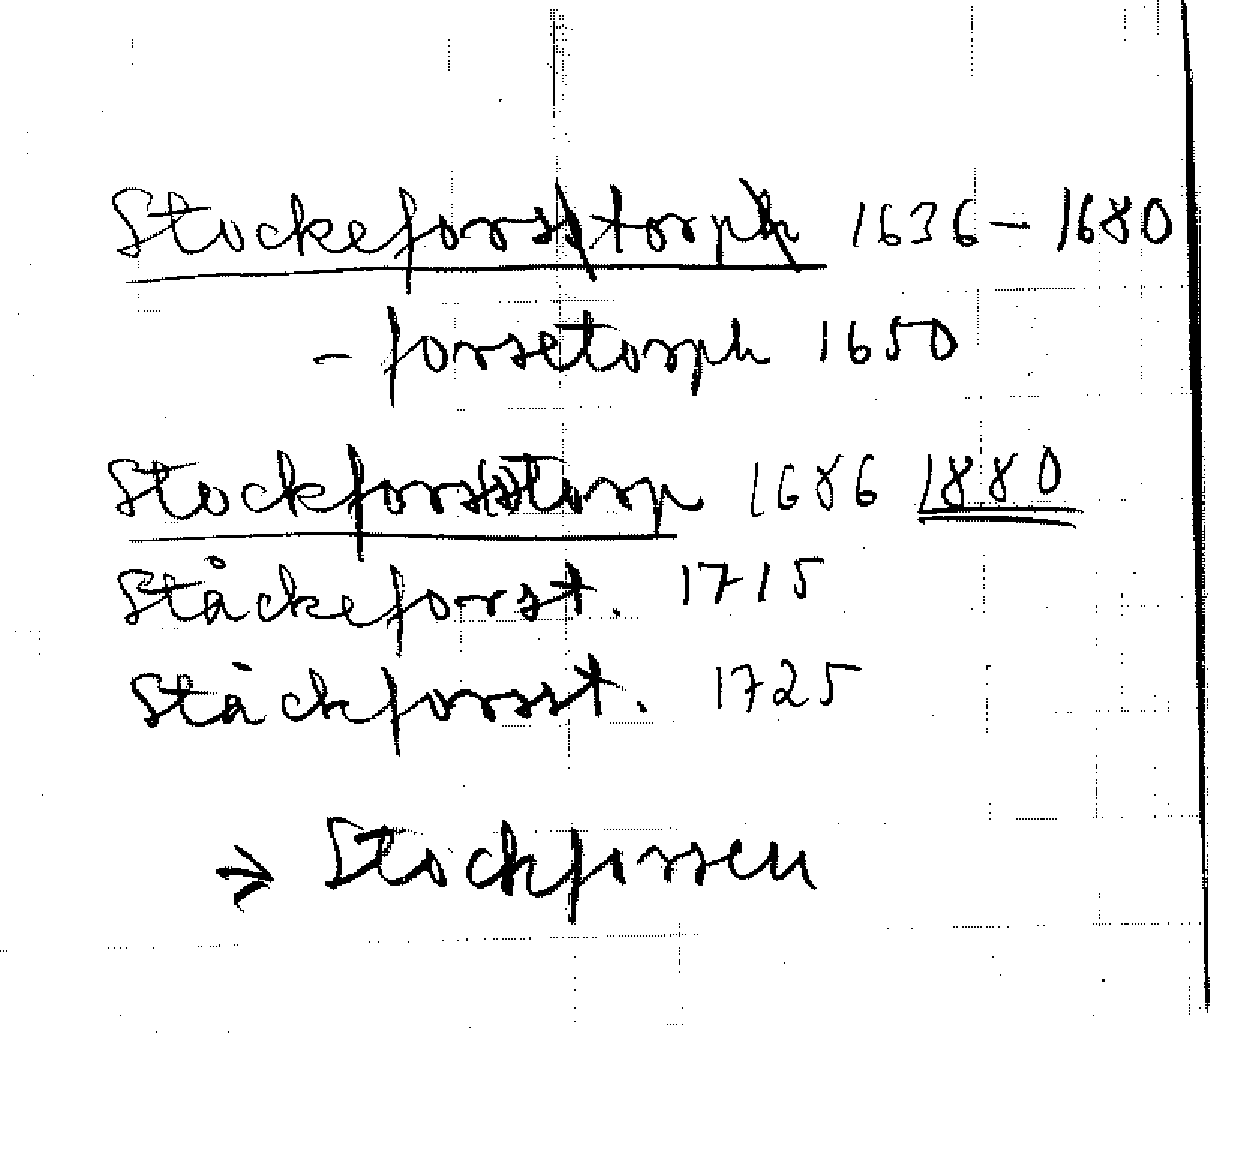 Stockeforsstorph 1636 – 1680
– forsetorph 1650
Stockforsstorp 1686 1880
Ståckeforst. 1715
Ståckforsst. 1725
→ Stockforsen